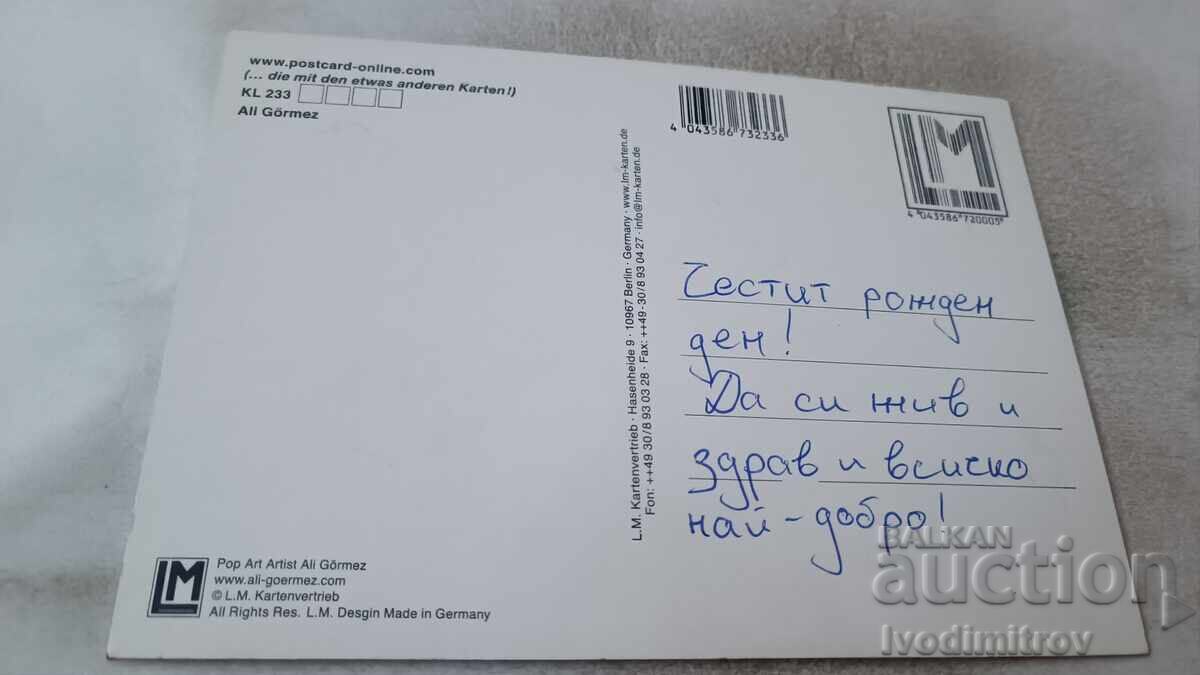 www.postcard-online.com
(... die mit den etwas anderen Karten!)
KL 233
Ali Görmez
4 043586 732336
LM
4 043586 720005
L.M. Kartenvertrieb · Hasenheide 9 · 10967 Berlin · Germany · www.lm-karten.de
Fon: ++49 30/8 93 03 28 · Fax: ++49 - 30/8 93 04 27 · info@lm-karten.de
Честит рожден
ден!
Да си жив и
здрав и всичко
най-добро!
LM
Pop Art Artist Ali Görmez
www.ali-goermez.com
© L.M. Kartenvertrieb
All Rights Res. L.M. Desgin Made in Germany
BALKAN
auction
Ivodimitrov